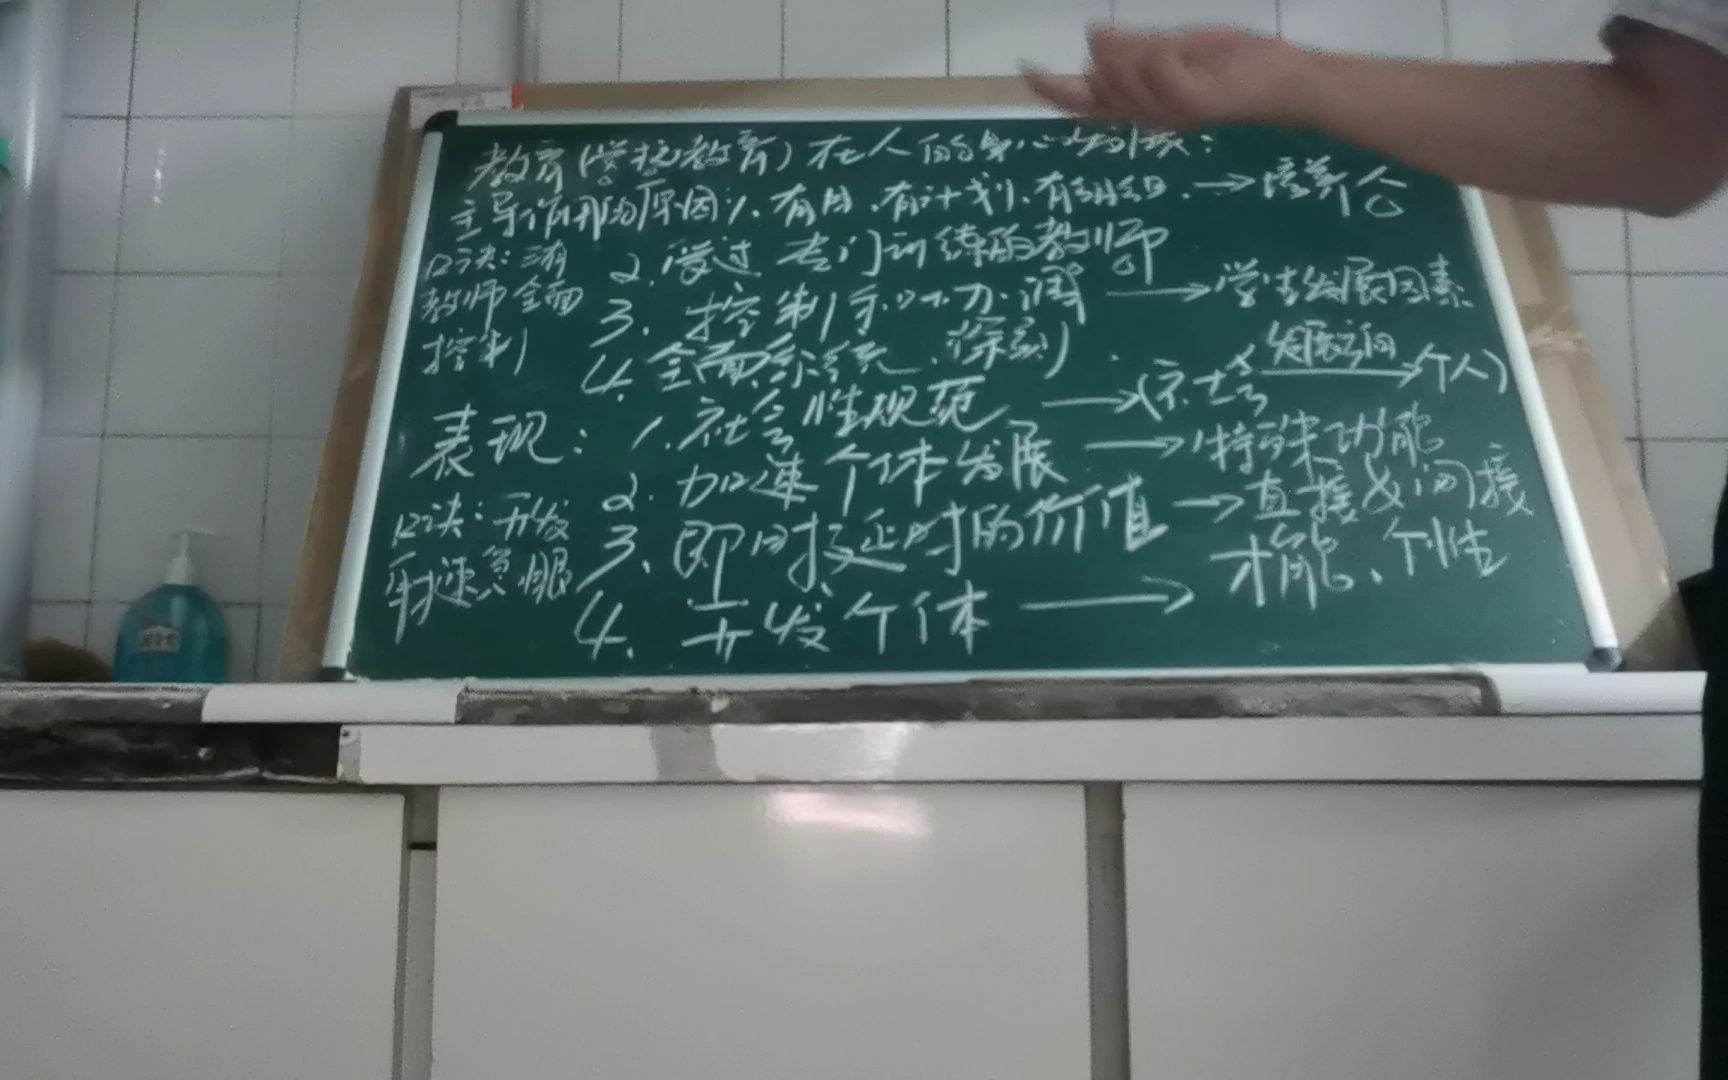 教育(学校教育)在人的身心发展:
主导作用的原因:1.有目、有计划、有组织.→培养人
口诀:三有
教师全面
控制
2.受过专门训练的教师
3.控制 →学生发展因素
4.全面系统、深刻
表现:1.社会性规范→(示社会 发展方向→个人)
2.加速个体发展→特殊功能
3.即时 延时的价值→直接&间接
4.开发个体→才能、个性
口诀:开发